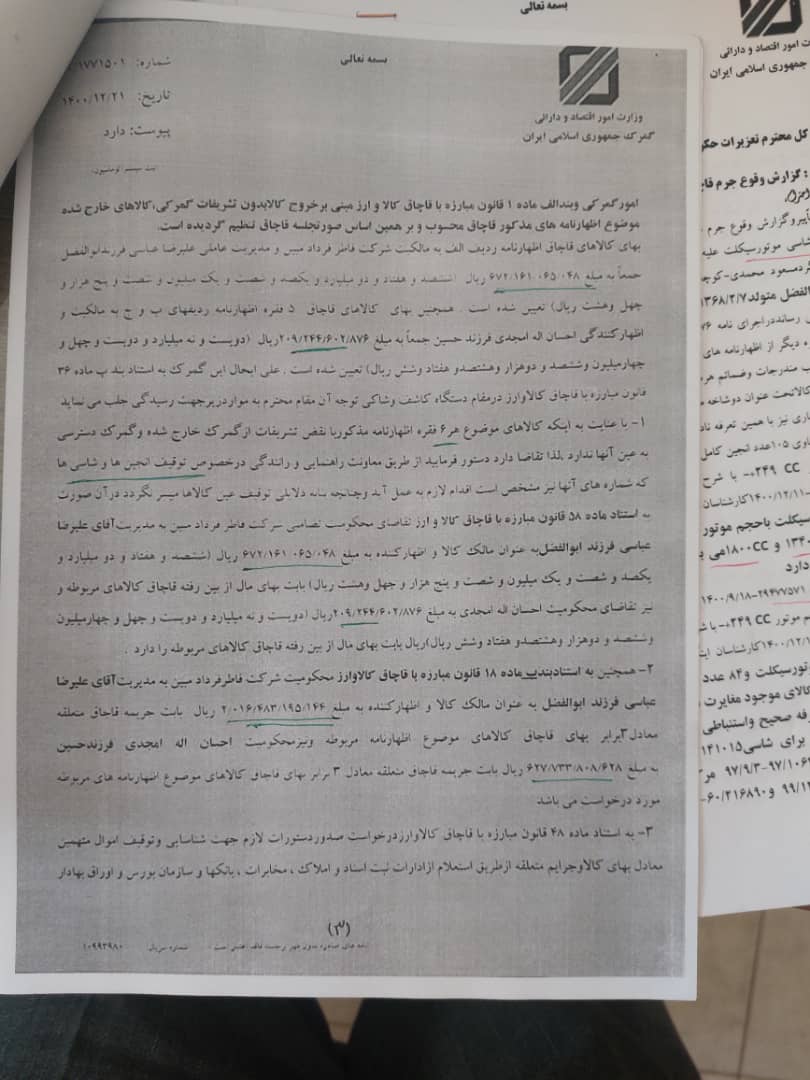 بسمه تعالی
وزارت امور اقتصاد و دارائی
گمرک جمهوری اسلامی ایران
شماره: ۱۷۷۱۵۰۱
تاریخ: ۱۴۰۰/۱۲/۲۱
پیوست: دارد
امورگمرکی وبندالف ماده ۱ قانون مبارزه با قاچاق کالا و ارز مبنی برخروج کالابدون تشریفات گمرکی،کالاهای خارج شده
موضوع اظهارنامه های مذکور قاچاق محسوب و بر همین اساس صورتجلسه قاچاق تنظیم گردیده است.
بهای کالاهای قاچاق اظهارنامه ردیف الف به مالکیت شرکت فاطر فرداد مبین و مدیریت عاملی علیرضا عباسی فرزندابوالفضل
جمعاً به مبلغ ۶۷۲/۱۶۱/۰۶۵/۰۴۸ ریال (ششصد و هفتاد و دو میلیارد و یکصد و شصت و یک میلیون و شصت و پنج هزار و
چهل وهشت ریال) تعیین شده است . همچنین بهای کالاهای قاچاق ۵ فقره اظهارنامه ردیفهای ب و ج به مالکیت و
اظهارکنندگی احسان اله امجدی فرزند حسین جمعاً به مبلغ ۲۰۹/۲۴۴/۶۰۲/۸۷۶ریال (دویست و نه میلیارد و دویست و چهل و
چهارمیلیون وششصد و دوهزار وهشتصدو هفتاد وشش ریال) تعیین شده است . علی ایحال این گمرک به استناد بند پ ماده ۳۶
قانون مبارزه با قاچاق کالاوارز درمقام دستگاه کاشف وشاکی توجه آن مقام محترم به مواردزیرجهت رسیدگی جلب می نماید
۱- با عنایت به اینکه کالاهای موضوع هر۶ فقره اظهارنامه مذکوربا نقض تشریفات ازگمرک خارج شده وگمرک دسترسی
به عین آنها ندارد .لذا تقاضا دارد دستور فرمایید از طریق معاونت راهنمایی و رانندگی درخصوص توقیف انجین ها و شاسی ها
که شماره های آنها نیز مشخص است اقدام لازم به عمل آید وچنانچه بنابه دلایلی توقیف عین کالاها میسر نگردد درآن صورت
به استناد ماده ۵۸ قانون مبارزه با قاچاق کالا و ارز تقاضای محکومیت تضامنی شرکت فاطر فرداد مبین به مدیریت آقای علیرضا
عباسی فرزند ابوالفضل به عنوان مالک کالا و اظهارکننده به مبلغ ۶۷۲/۱۶۱/۰۶۵/۰۴۸ ریال (ششصد و هفتاد و دو میلیارد و
یکصد و شصت و یک میلیون و شصت و پنج هزار و چهل وهشت ریال) بابت بهای مال از بین رفته قاچاق کالاهای مربوطه و
نیز تقاضای محکومیت احسان اله امجدی به مبلغ ۲۰۹/۲۴۴/۶۰۲/۸۷۶ریال (دویست و نه میلیارد و دویست و چهل و چهارمیلیون
وششصد و دوهزار وهشتصدو هفتاد وشش ریال)ریال بابت بهای مال از بین رفته قاچاق کالاهای مربوطه را دارد .
۲- همچنین به استنادبندت ماده ۱۸ قانون مبارزه با قاچاق کالاوارز محکومیت شرکت فاطرفرداد مبین به مدیریت آقای علیرضا
عباسی فرزند ابوالفضل به عنوان مالک کالا و اظهارکننده به مبلغ ۲/۰۱۶/۴۸۳/۱۹۵/۱۴۴ ریال بابت جریمه قاچاق متعلقه
معادل۳برابر بهای قاچاق کالاهای موضوع اظهارنامه مربوطه ونیزمحکومیت احسان اله امجدی فرزندحسین
به مبلغ ۶۲۷/۷۳۳/۸۰۸/۶۲۸ ریال بابت جریمه قاچاق متعلقه معادل ۳ برابر بهای قاچاق کالاهای موضوع اظهارنامه های مربوطه
مورد درخواست می باشد
۳- به استناد ماده ۴۸ قانون مبارزه با قاچاق کالاوارزدرخواست صدوردستورات لازم جهت شناسایی وتوقیف اموال متهمین
معادل بهای کالاوجرایم متعلقه ازطریق استعلام ازادارات ثبت اسناد و املاک ، مخابرات ، بانکها و سازمان بورس و اوراق بهادار
(۳)
شماره سریال ۱۰۹۹۳۹۸۰
بسمه تعالی
وزارت امور اقتصاد و دارائی
جمهوری اسلامی ایران
کل محترم تعزیرات
: گزارش وقوع جرم
گزارش وقوع جرم
شاسی موتورسیکلت علیه
مسعود محمدی-کوچه
الفضل متولد۱۳۶۸/۲/۷
دیگر از اظهارنامه های
مندرجات وضمائم
تحت عنوان دوشاخه
نیز با همین تعرفه
۱۰۵عدد انجین کامل
۲۴۹ CC- با شرح
۱۴۰۰/۱۲/۱۱کارشناسان
سیکلت باحجم موتور
و ۱۸۰۰CCمی
دارد
۲۹۴۷۷۵۷۱-۱۴۰۰/۹/۱۸
موتور ۲۴۹ CC- با
کارشناسان
موتورسیکلت و۸۴ عدد
کالای موجود مغایرت
صحیح واستنباطی
برای شاسی۱۴۱۰۱۵
۹۷/۹/۳-